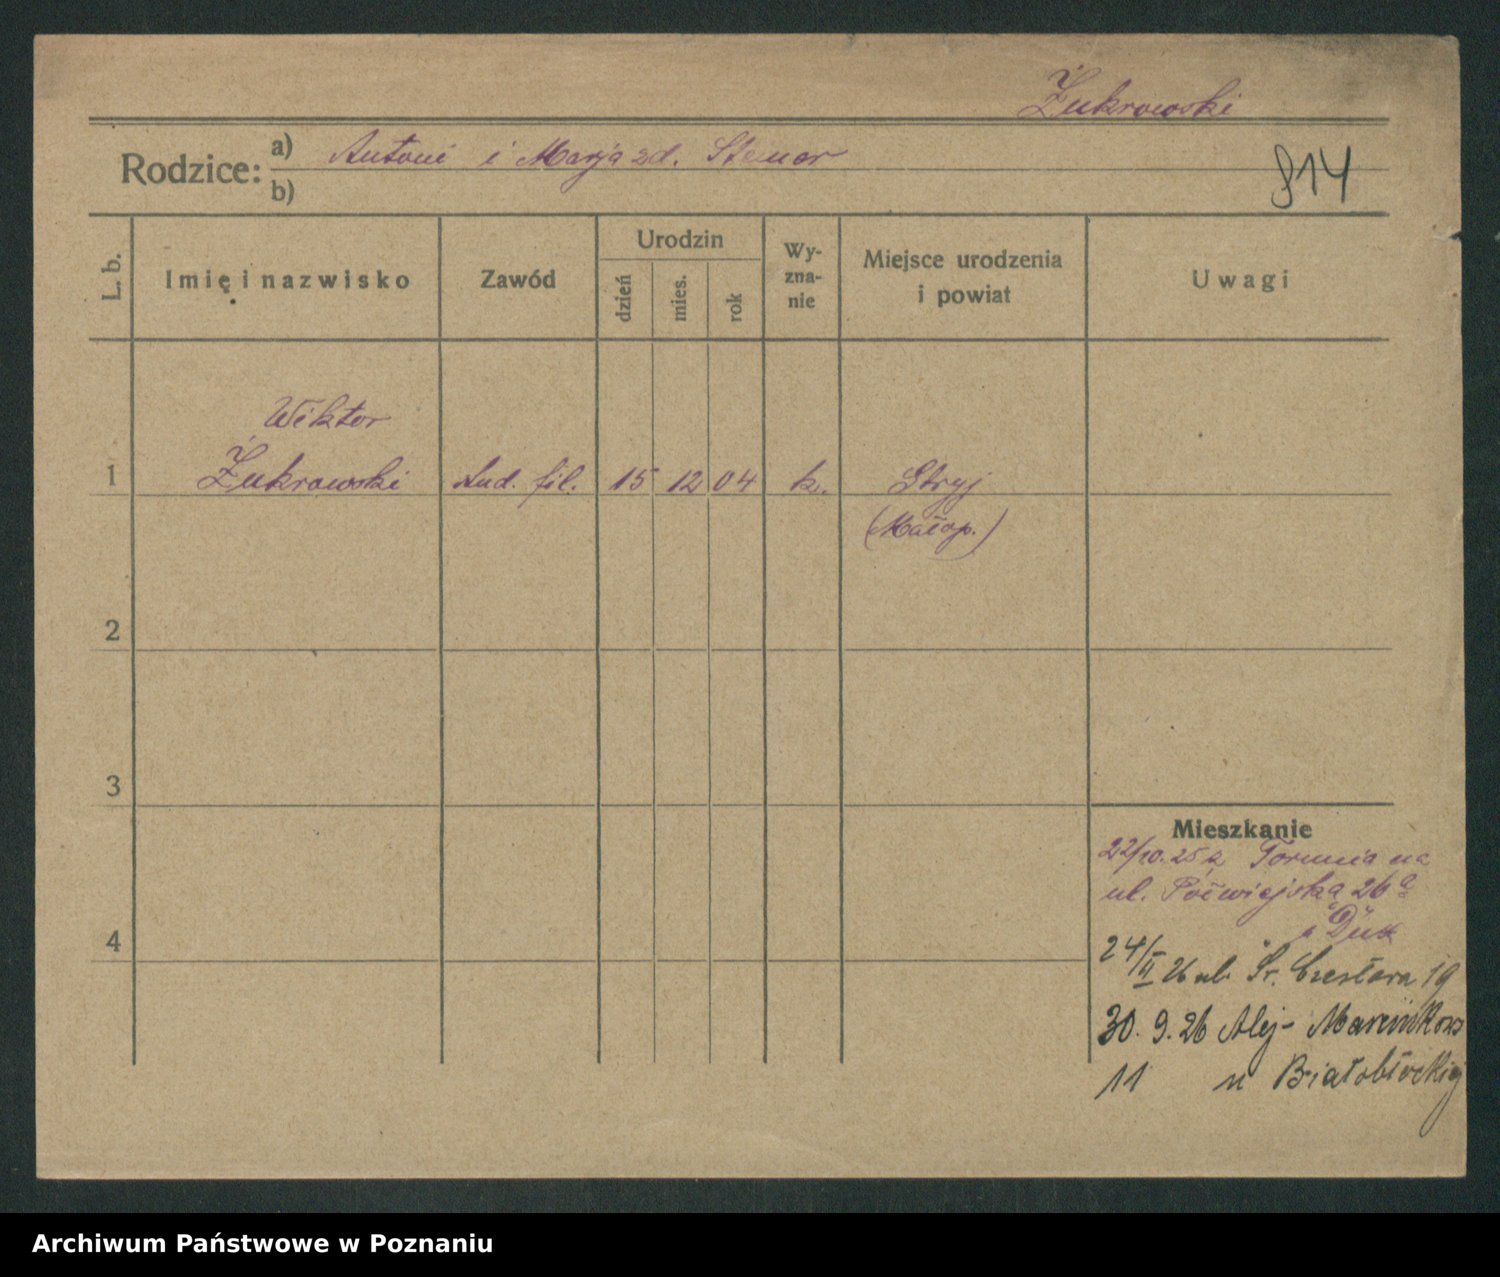 Żukrowski
Rodzice: a) Antoni i Marja zd.
b)
814
L. b.
Imię i nazwisko
Zawód
Urodzin
dzień
mies.
rok
Wy-
zna-
nie
Miejsce urodzenia
i powiat
Uwagi
Wiktor
1 Żukrowski stud. fil. 15 12 04 k. Stryj
(Małop.)
2
3
4
Mieszkanie
22/10.25 z Torunia na
ul. Półwiejska 26a
24/II 26 ul. Śr. Czesława 19
30. 9. 26 Alej- Marcinkow
11 u Białobłockiej
Archiwum Państwowe w Poznaniu